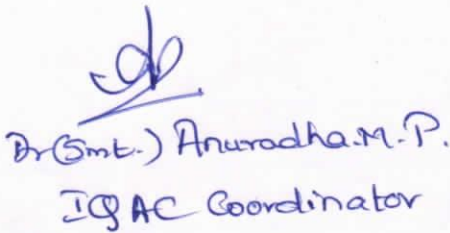 Dr(Smt.) Anuradha.M.P.
IQAC Coordinator